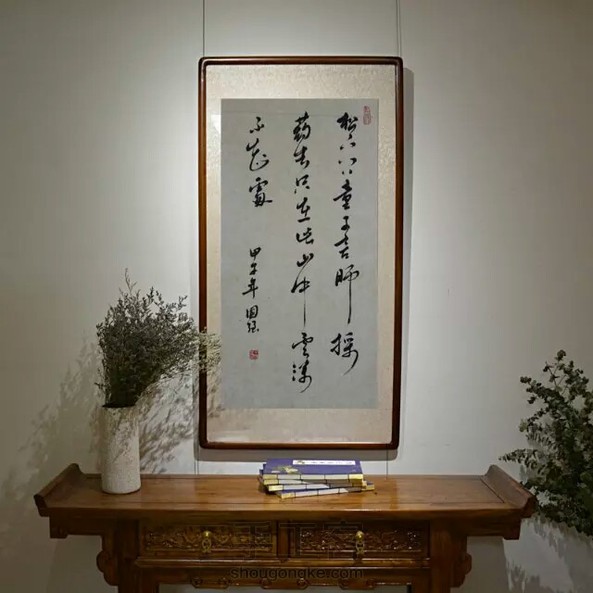 松下问童子言師採
葯去只在此山中雲深
不知處
甲午年
shougongke.com